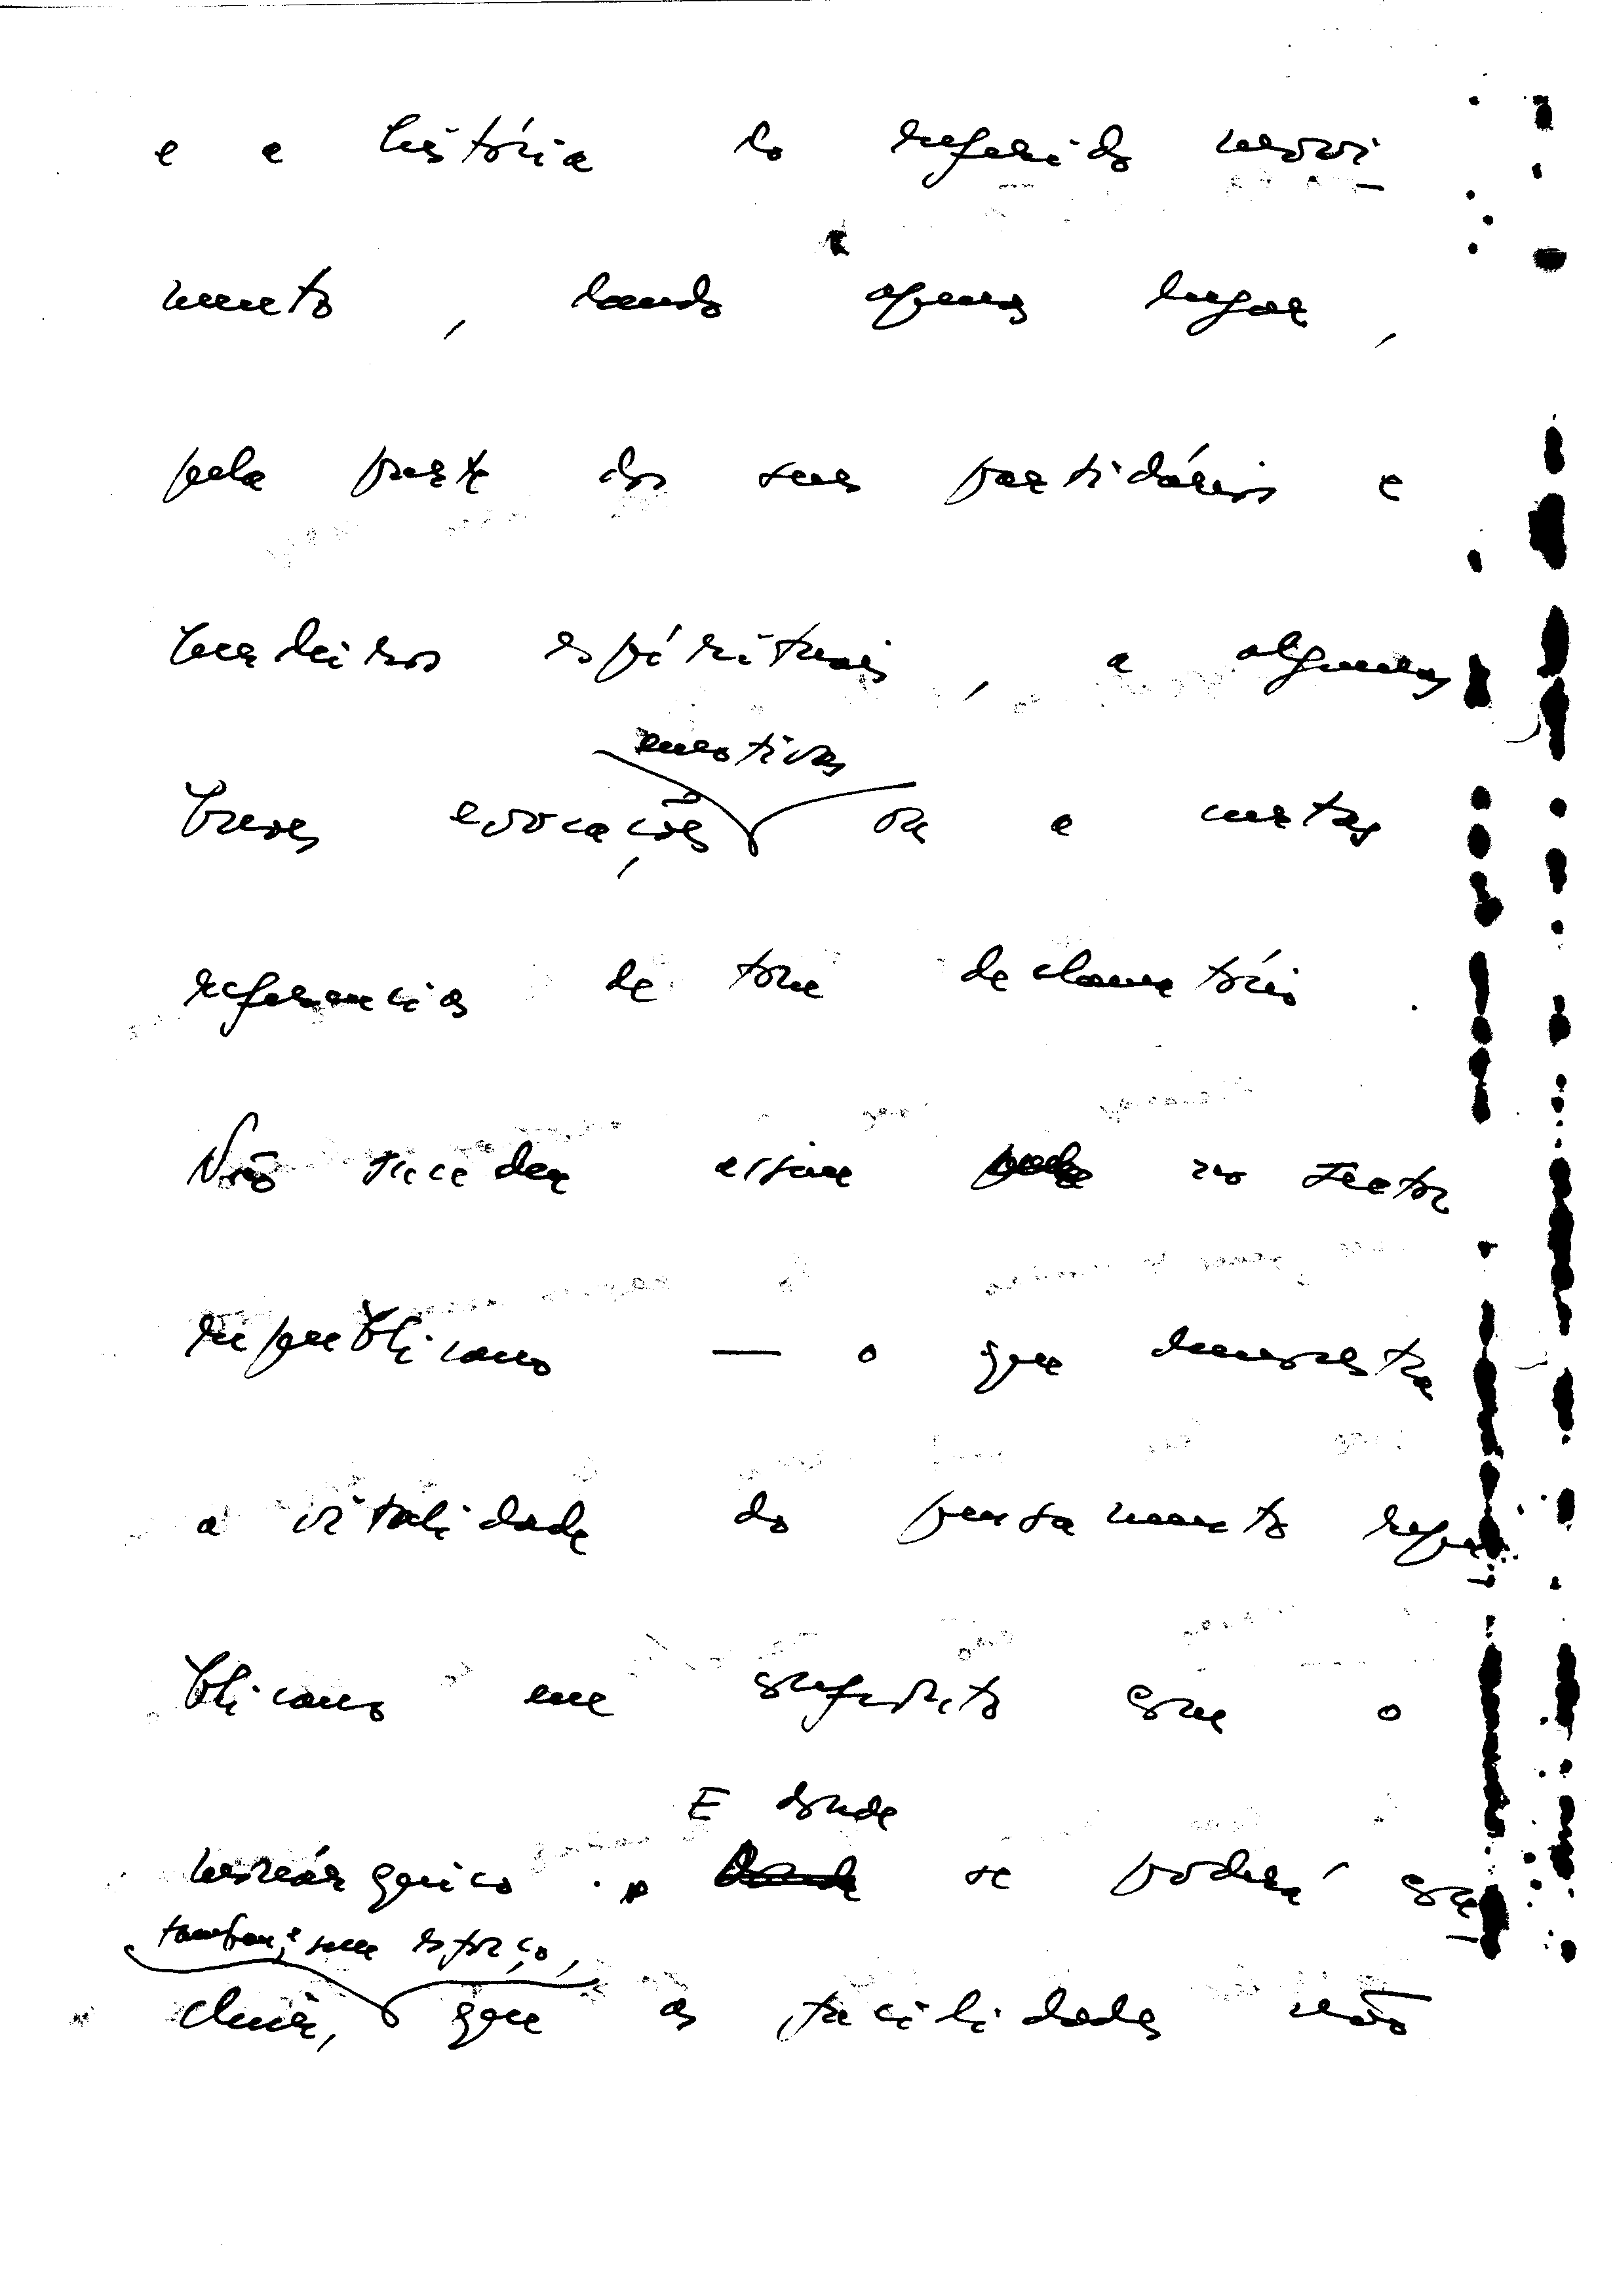 e a história do referido movi-
mento, dando apenas lugar,
pela parte dos seus partidários e
herdeiros espirituais, a algumas
emotivas
breves evocações ou a certas
referências de tom declamatório.
Não sucedeu assim no sector
republicano — o que demonstra
a vitalidade do pensamento repu-
blicano em confronto com o
E donde
monárquico. se poderá con-
também, sem esforço,
cluir, que as facilidades não